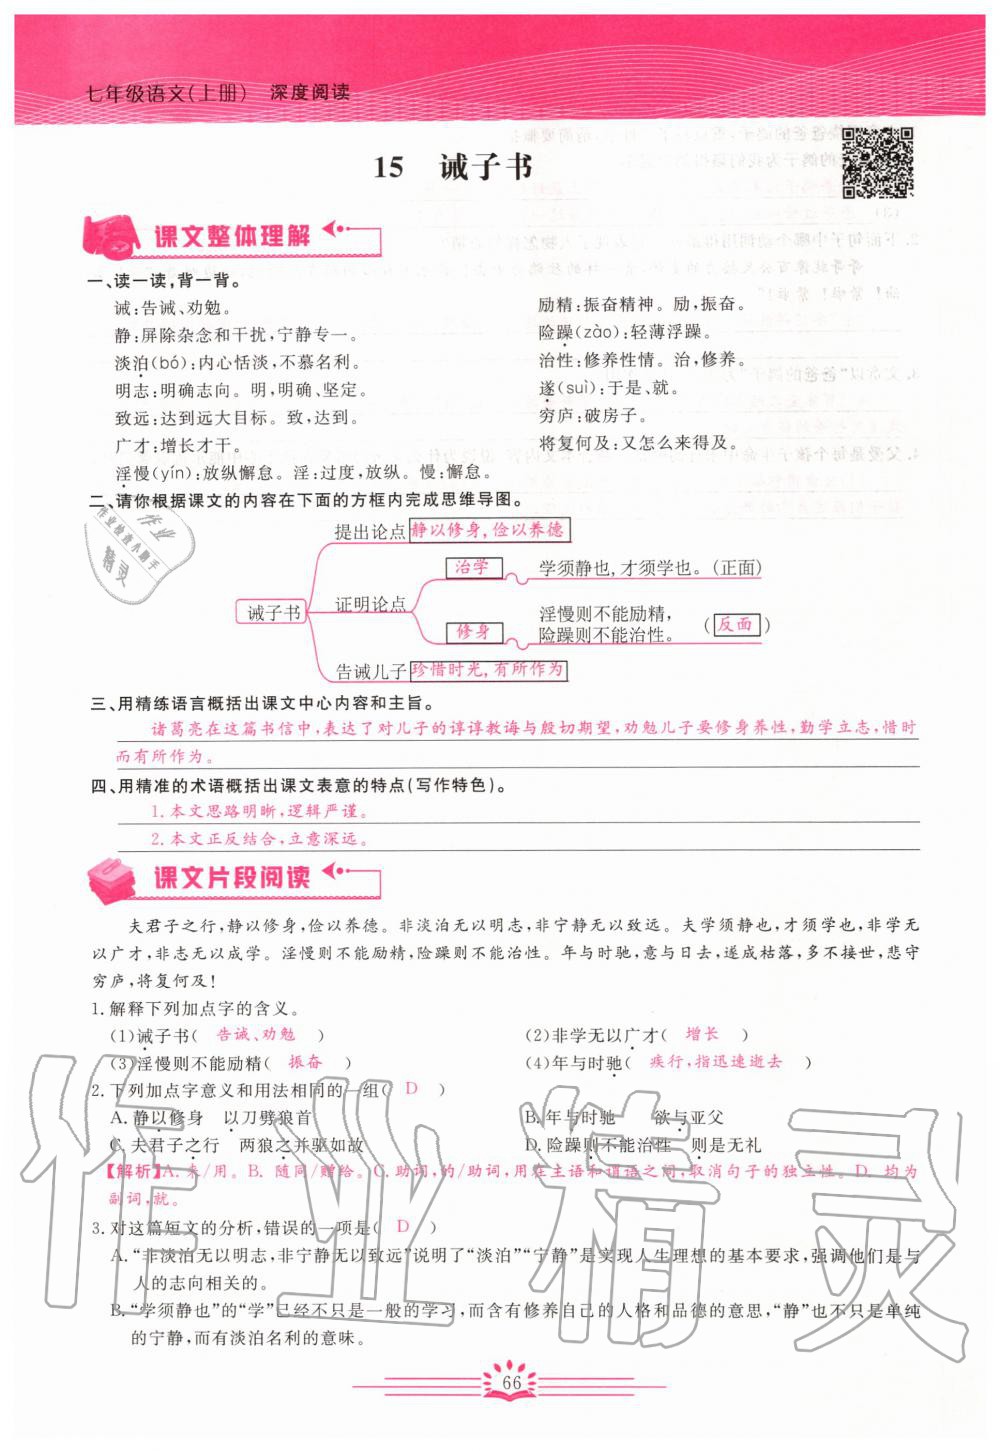 七年级语文(上册) 深度阅读
15 诫子书
课文整体理解
一、读一读,背一背。
诫:告诫、劝勉。
静:屏除杂念和干扰,宁静专一。
淡泊(bó):内心恬淡,不慕名利。
明志:明确志向。明,明确、坚定。
致远:达到远大目标。致,达到。
广才:增长才干。
淫慢(yín):放纵懈怠。淫:过度,放纵。慢:懈怠。
励精:振奋精神。励,振奋。
险躁(zào):轻薄浮躁。
治性:修养性情。治,修养。
遂(suì):于是、就。
穷庐:破房子。
将复何及:又怎么来得及。
二、请你根据课文的内容在下面的方框内完成思维导图。
提出论点 静以修身,俭以养德
治学 学须静也,才须学也。(正面)
诫子书 证明论点
修身 淫慢则不能励精,
险躁则不能治性。 (反面)
告诫儿子 珍惜时光,有所作为
三、用精练语言概括出课文中心内容和主旨。
诸葛亮在这篇书信中,表达了对儿子的谆谆教诲与殷切期望,劝勉儿子要修身养性,勤学立志,惜时
而有所作为。
四、用精准的术语概括出课文表意的特点(写作特色)。
1.本文思路明晰,逻辑严谨。
2.本文正反结合,立意深远。
课文片段阅读
夫君子之行,静以修身,俭以养德。非淡泊无以明志,非宁静无以致远。夫学须静也,才须学也,非学无
以广才,非志无以成学。淫慢则不能励精,险躁则不能治性。年与时驰,意与日去,遂成枯落,多不接世,悲守
穷庐,将复何及!
1.解释下列加点字的含义。
(1)诫子书( 告诫、劝勉 ) (2)非学无以广才( 增长 )
(3)淫慢则不能励精( 振奋 ) (4)年与时驰( 疾行,指迅速逝去 )
2.下列加点字意义和用法相同的一组( D )
A.静以修身 以刀劈狼首 B.年与时驰 欲与亚父
C.夫君子之行 两狼之并驱如故 D.险躁则不能治性 则是无礼
【解析】A.来/用。B.随同/赠给。C.助词,的/助词,用在主语和谓语之间,取消句子的独立性。D.均为
副词,就。
3.对这篇短文的分析,错误的一项是( D )
A.“非淡泊无以明志,非宁静无以致远”说明了“淡泊”“宁静”是实现人生理想的基本要求,强调他们是与
人的志向相关的。
B.“学须静也”的“学”已经不只是一般的学习,而含有修养自己的人格和品德的意思,“静”也不只是单纯
的宁静,而有淡泊名利的意味。
66
作业精灵
作业
作业检查小助手
精灵